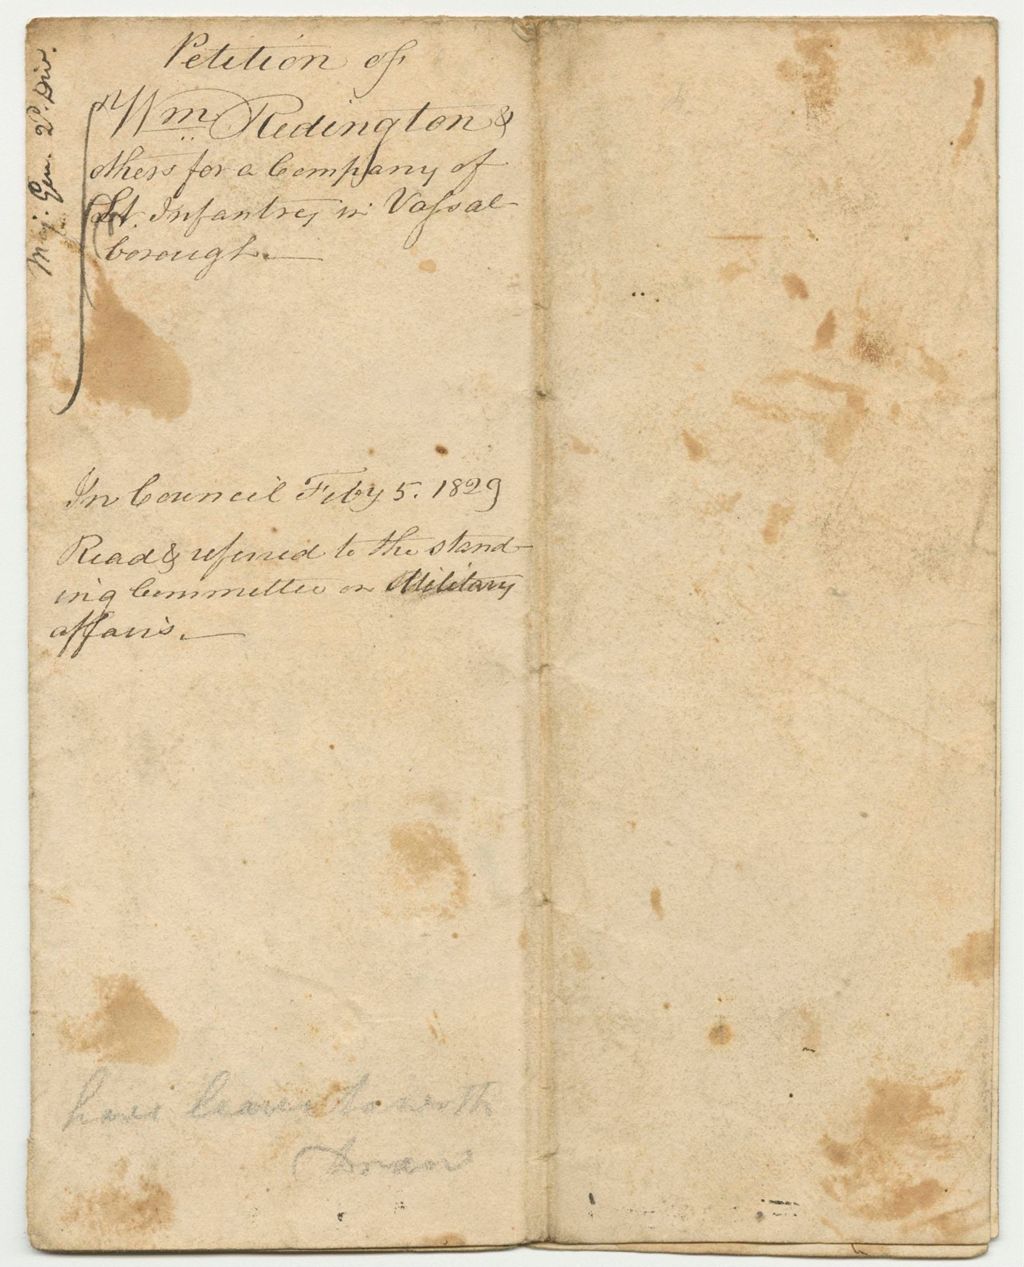 Maj. Gen. 2d. Div.
Petition of
Wm Redington &
others for a Company of
Lt. Infantry in Vassal-
borough.
In Council Feby 5. 1829
Read & referred to the stand-
ing Committee on Military
affairs.
have leave to with
draw